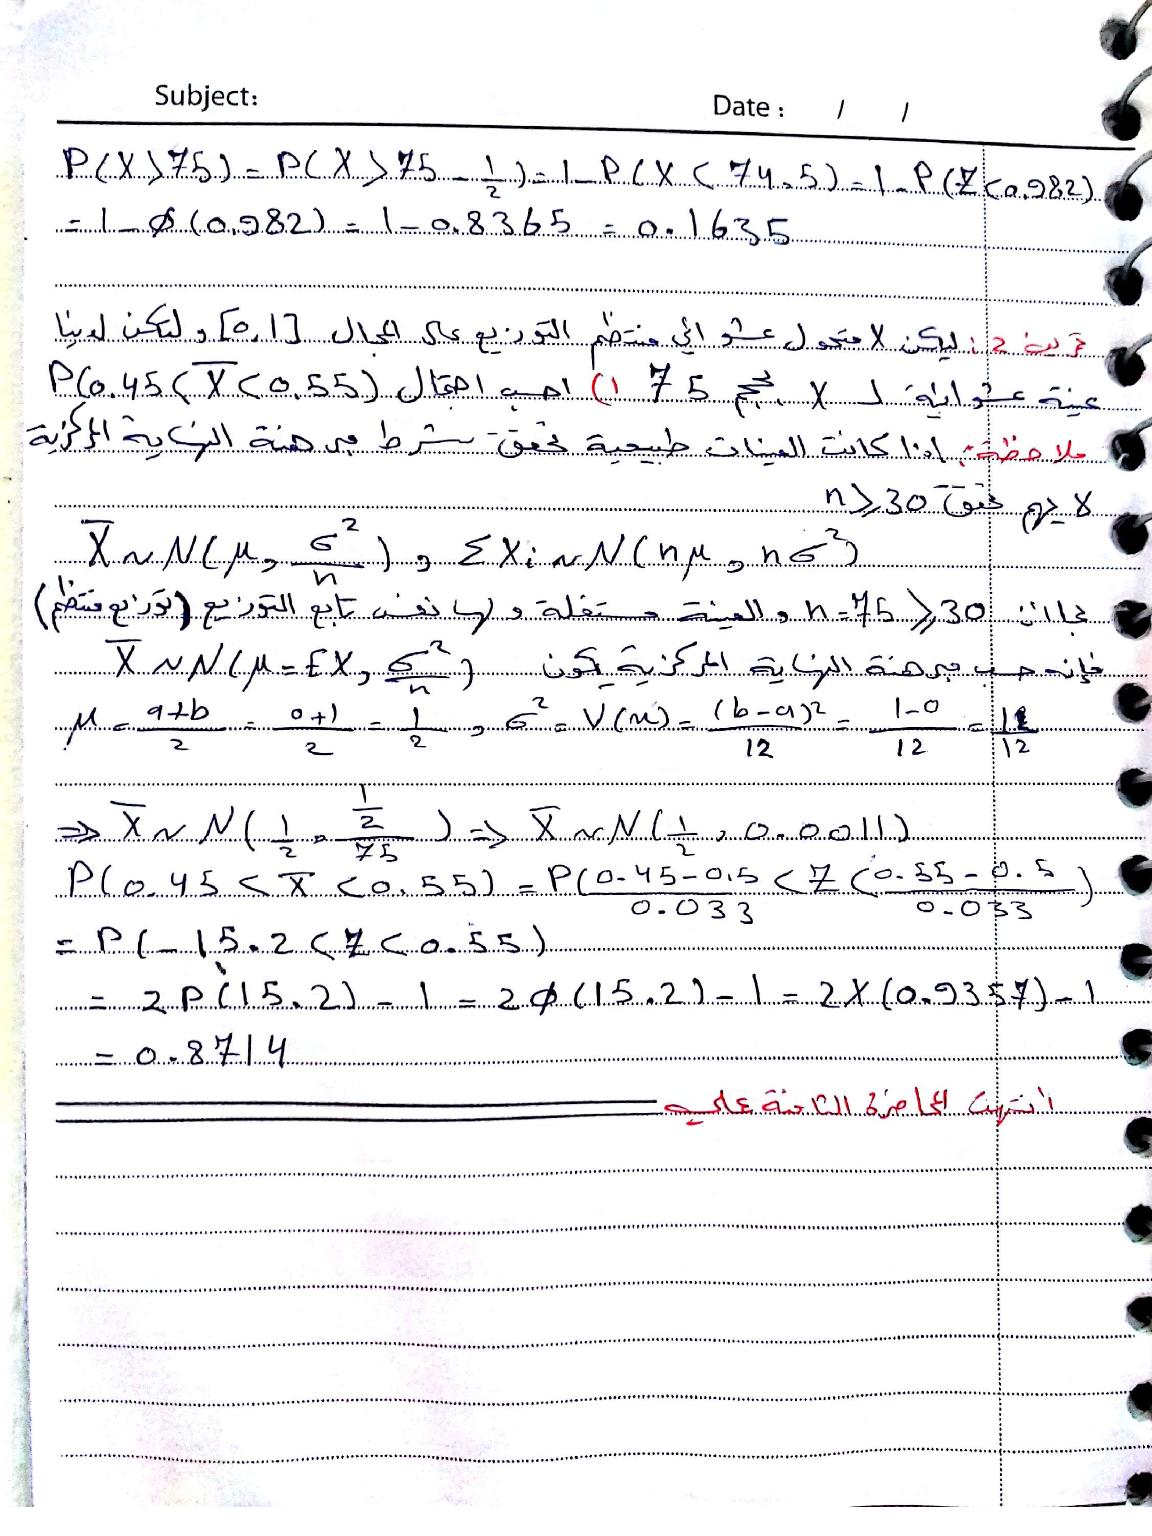 Subject:
Date : / /
P(X>75) = P(X > 75 - 1/2) = 1 - P(X < 74.5) = 1 - P(Z < 0.982)
= 1 - ø(0.982) = 1 - 0.8365 = 0.1635
تمرين 2: ليكن X متحول عشوائي منتظم التوزيع على المجال [0,1] و لتكن لدينا
عينة عشوائية لـ X بحجم 75 1) احسب احتمال P(0.45 < X̄ < 0.55)
ملاحظة: إذا كانت العينات طبيعية تحقق شرط مبرهنة النهاية المركزية
لا يهم تحقق n ≥ 30
X̄ ~ N(μ, σ²/n) , ΣXi ~ N(nμ, nσ²)
بما أن n = 75 ≥ 30 و العينة مستقلة و لها نفس تابع التوزيع (توزيع منتظم)
فإنه حسب مبرهنة النهاية المركزية يكون X̄ ~ N(μ = EX, σ²/n)
μ = a+b/2 = 0+1/2 = 1/2 , σ² = V(x) = (b-a)²/12 = 1-0/12 = 1/12
⇒ X̄ ~ N(1/2, 1/2/75) ⇒ X̄ ~ N(1/2, 0.0011)
P(0.45 < X̄ < 0.55) = P(0.45-0.5/0.033 < Z < 0.55-0.5/0.033)
= P(-15.2 < Z < 0.55)
= 2P(15.2) - 1 = 2ø(15.2) - 1 = 2X(0.9357) - 1
= 0.8714
انتهت المحاضرة الثامنة عملي